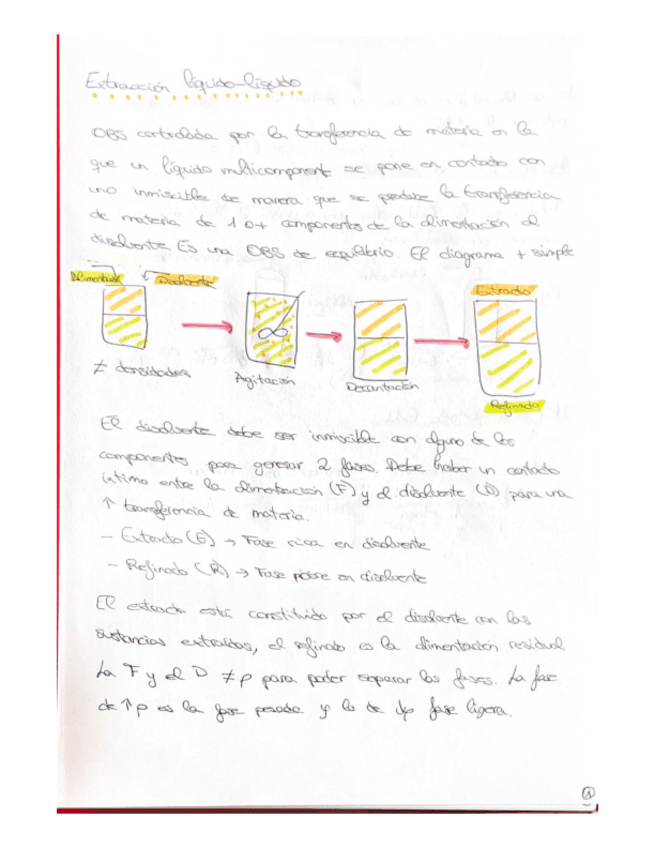 Extracción líquido-líquido
OBS controlada por la transferencia de materia en la
que un líquido multicomponent se pone en contacto con
uno inmiscible de manera que se produce la transferencia
de materia de 1 o + componentes de la alimentación al
disolvente. Es una OBS de equilibrio. El diagrama + simple
Alimentación Disolvente Extracto
≠ densidades Agitación Decantación
Refinado
El disolvente debe ser inmiscible con alguno de los
componentes para generar 2 fases. Debe haber un contacto
íntimo entre la alimentación (F) y el disolvente (D) para una
↑ transferencia de materia.
- Extracto (E) → Fase rica en disolvente
- Refinado (R) → Fase pobre en disolvente
El extracto está constituido por el disolvente con las
sustancias extraídas, el refinado es la alimentación residual.
La F y el D ≠ ρ para poder separar las fases. La fase
de ↑ρ es la fase pesada y la de ↓ρ fase ligera.
1